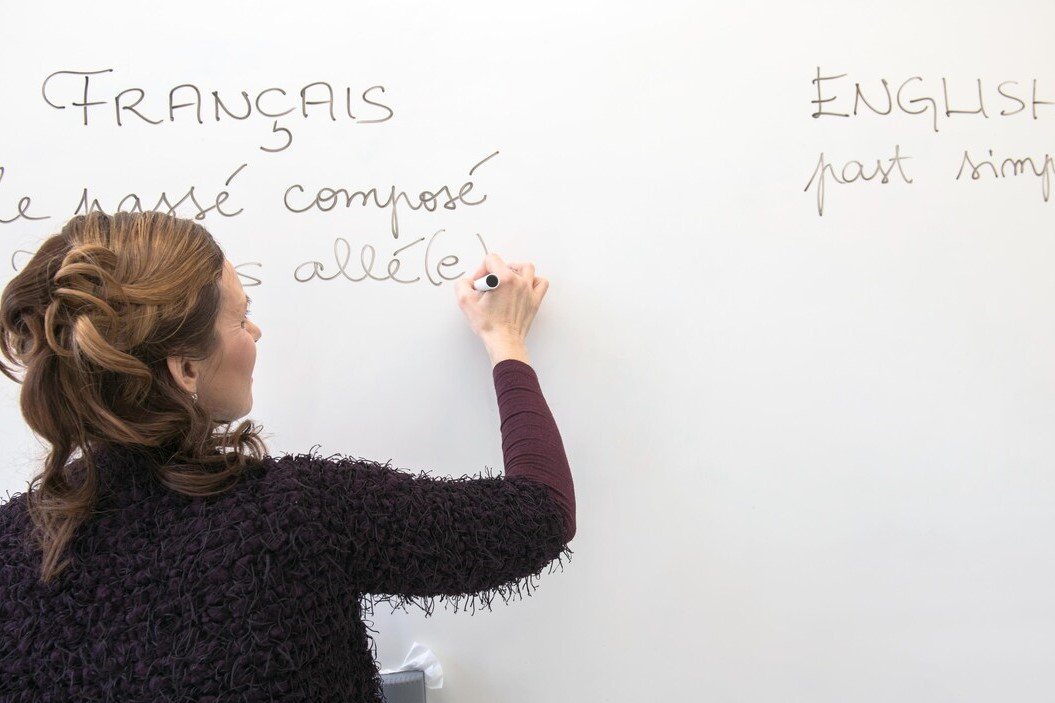 FRANÇAIS
le passé composé
allé(e)
ENGLISH
past simp